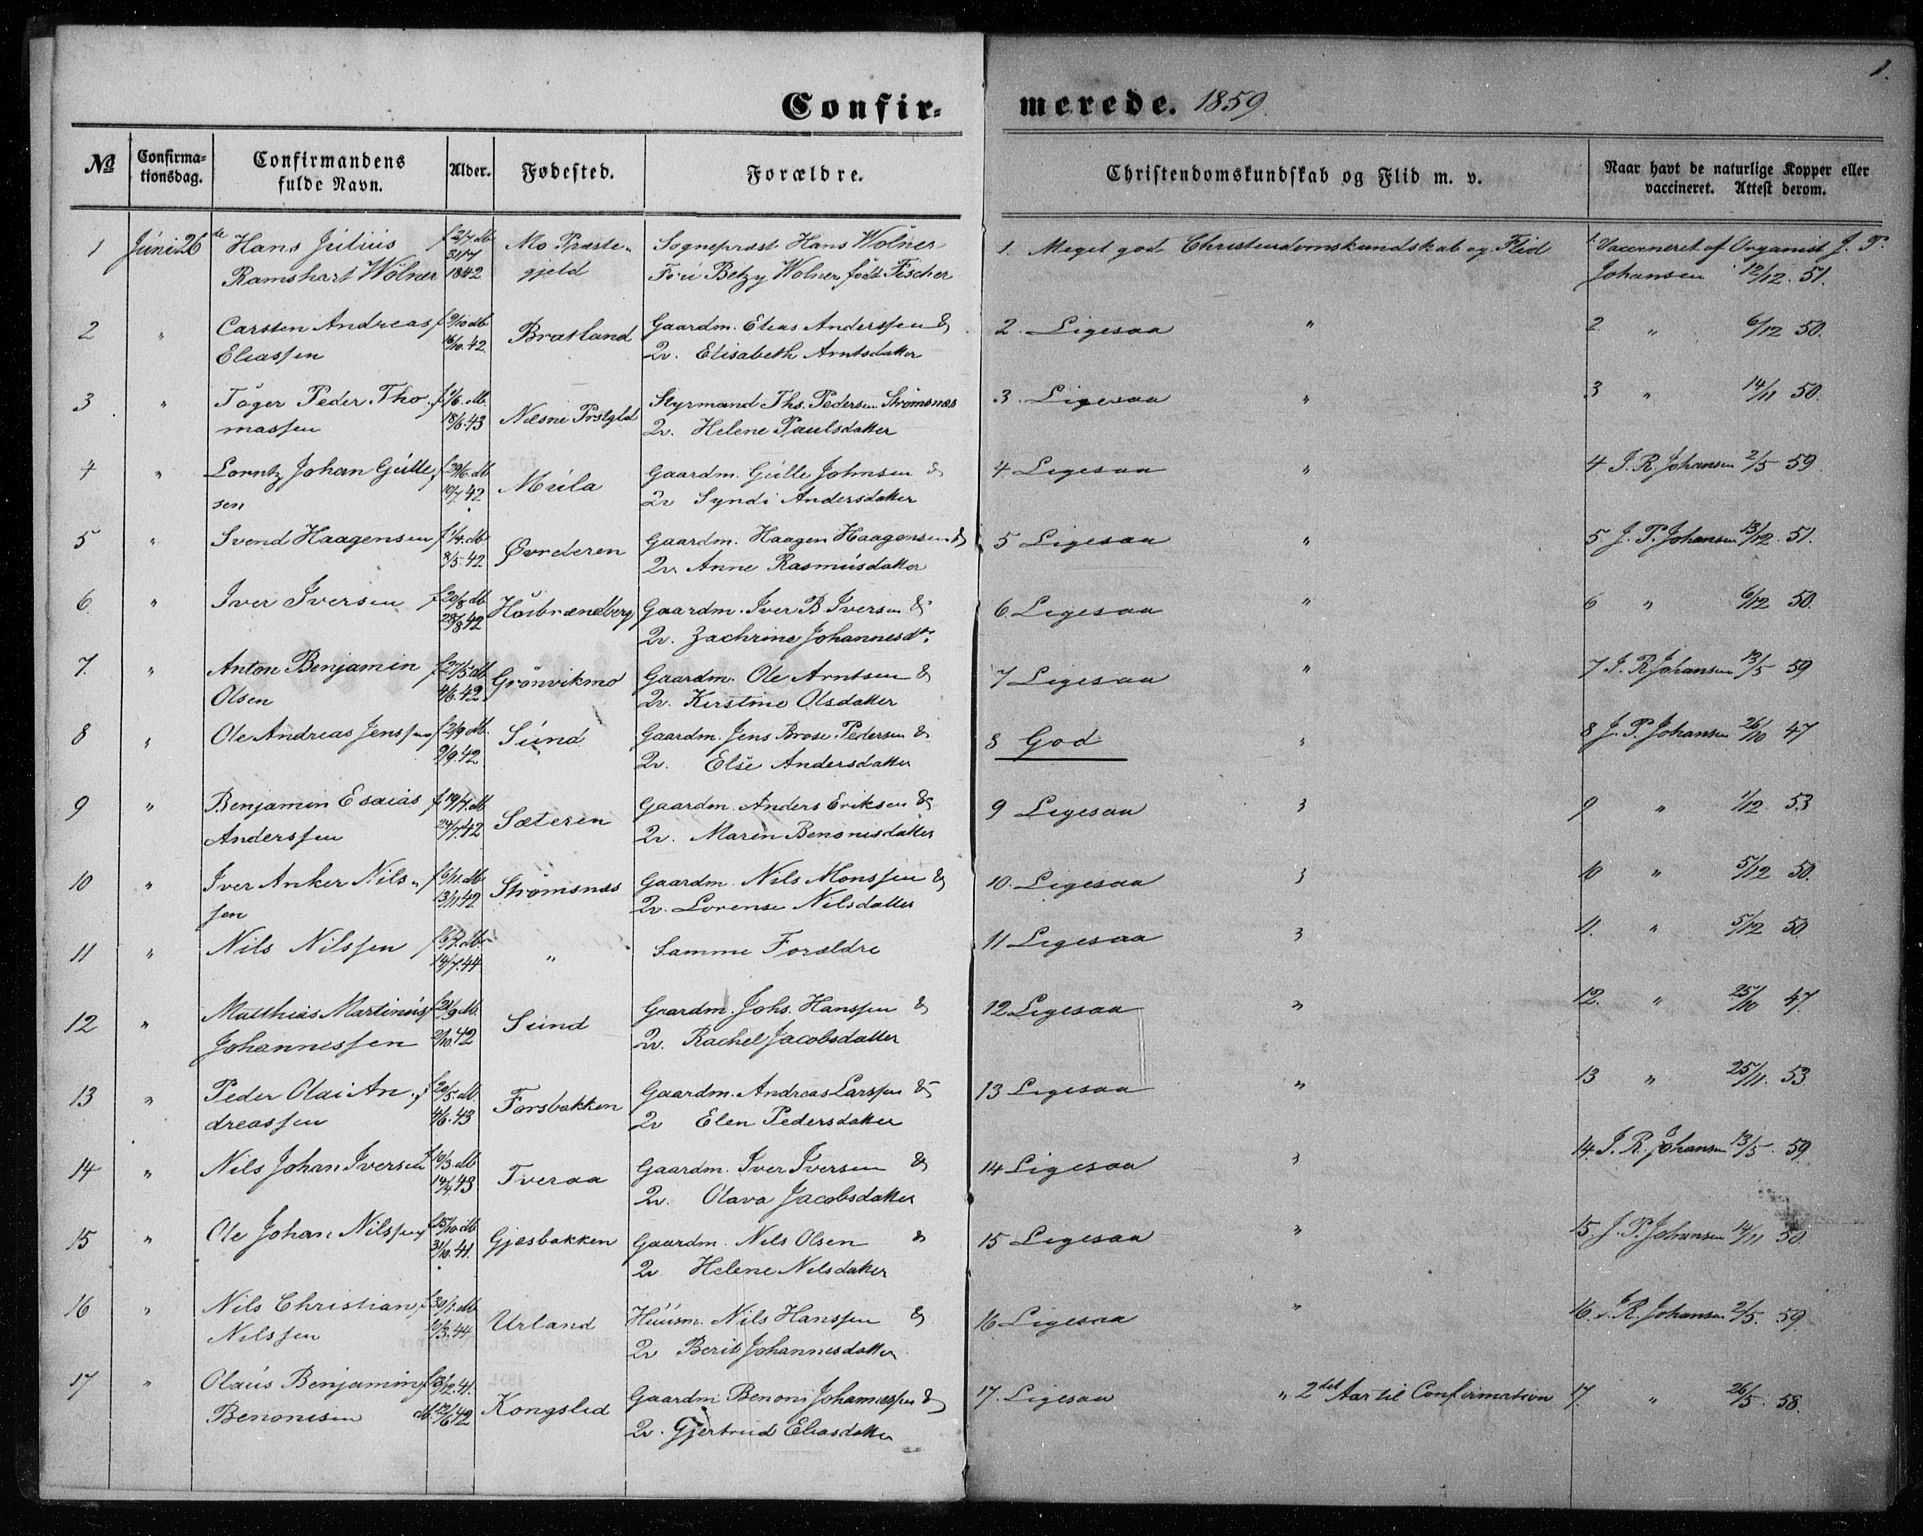 1.
Confirmerede. 1859.
№ Confirmationsdag. Confirmandens fulde Navn. Alder. Fødested. Forældre. Christendomskundskab og Flid m. v. Naar havt de naturlige Kopper eller vaccineret. Attest derom.
1 Juni 26de Hans Julius f 2/7 db Mo Præste- Sognepræst Hans Wolner 1. Meget god Christendomskundskab og Flid 1. Vaccineret af Organist J. P.
Ramshart Wolner 31/7 1842 gjeld Fru Betzy Wolner født Fischer Johansen 12/12. 51.
2 " Carsten Andreas f 9/10 db Bratland Gaardm. Elias Anderssen & 2. Ligesaa " 2 " 6/12 50.
Eliassen 16/10. 42. Qv. Elisabeth Arntsdatter
3 " Töger Peder Tho- f 1/6. db. Næsne Prstgld Styrmand Ths. Pedersen Strømsnæs 3. Ligesaa " 3 " 14/11 50.
massen 18/6. 43 Qv. Helene Paulsdatter
4 " Lorntz Johan Gulle- f 29/6. db Mula Gaardm. Gulle Johnsen & 4. Ligesaa " 4 J. R. Johansen 2/5 59.
sen 10/7. 42 Qv Syndi Andersdatter
5 " Svend Haagensen f 1/4. db Øvrderen Gaardm. Haagen Haagensen & 5 Ligesaa " 5 J. P. Johansen 13/12. 51.
8/5. 42 Qv Anne Rasmusdatter
6. " Iver Iversen f 20/8 db Høsbrændberg Gaardm. Iver B Iversen & 6. Ligesaa " 6 " 6/12 50.
28/8 42 Qv. Zachrine Johannesdtr.
7. " Anton Benjamin f 27/5 db Grønvikmo Gaardm. Ole Arntsen & 7 Ligesaa " 7 J. R. Johansen 13/5 59
Olsen 4/6. 42. Qv. Kirstine Olsdatter
8 " Ole Andreas Jenssen f 2/9 db. Sund Gaardm. Jens Brose Pedersen & 8 God " 8 J. P. Johansen 26/10 47
9/9. 42 Qv. Else Andersdatter
9 " Benjamin Esaias f 19/7. db Sæteren Gaardm. Anders Eriksen & 9 Ligesaa " 9 " 1/12. 53
Anderssen 24/7. 42 Qv. Maren Benonisdatter
10 " Iver Anker Nils- f 6/11. db Strømsnæs Gaardm. Nils Monssen & 10. Ligesaa " 10 " 5/12 50.
sen 13/11 42 Qv. Lorense Nilsdatter
11 " Nils Nilssen f 6/7. db " Samme Forældre 11 Ligesaa " 11. " 5/12 50.
14/7. 44
12 " Matthias Martinus f 21/9 db. Sund Gaardm. Johs. Hanssen & 12 Ligesaa " 12. " 25/10 47.
Johannessen 2/10. 42 Qv. Rachel Jacobsdatter
13 " Peder Olai An- f 20/5. db. Forsbakken Gaardm. Andreas Larssen & 13 Ligesaa " 13 " 25/11. 53
dreassen 4/6. 43 Qv Elen Pedersdatter
14 " Nils Johan Iversen f 10/3. db Tveraa Gaardm. Iver Iversen & 14 Ligesaa " 14. J. R. Johansen 13/5. 59
14/4 43 Qv. Olava Jacobsdatter
15 " Ole Johan Nilssen f 15/10 db Gjæsbakken Gaardm. Nils Olsen & 15 Ligesaa " 15. J. P. Johansen 14/11 50.
31/10. 41. Qv Helene Nilsdatter
16 " Nils Christian f 30/1. db. Urland Huusm. Nils Hanssen & 16 Ligesaa " 16. R. Johansen 2/5. 59.
Nilssen 10/3. 44 Qv Berit Johannesdatter
17 " Olaus Benjamin f 13/12. 41. Kongslid Gaardm Benoni Johannessen & 17. Ligesaa " 2det Aar til Confirmation 17. " 26/5. 58.
Benonisen db. 12/6 42 Qv. Gjertrud Eliasdatter